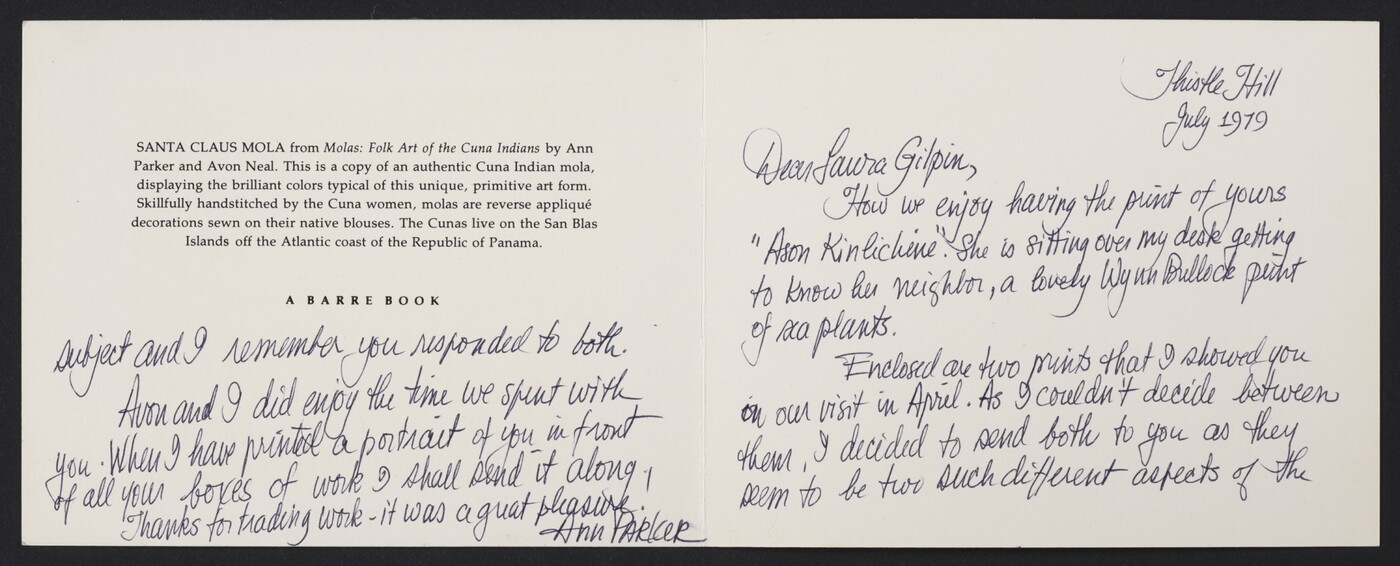 SANTA CLAUS MOLA from Molas: Folk Art of the Cuna Indians by Ann
Parker and Avon Neal. This is a copy of an authentic Cuna Indian mola,
displaying the brilliant colors typical of this unique, primitive art form.
Skillfully handstitched by the Cuna women, molas are reverse appliqué
decorations sewn on their native blouses. The Cunas live on the San Blas
Islands off the Atlantic coast of the Republic of Panama.
A BARRE BOOK
Thistle Hill
July 1979
Dear Laura Gilpin,
How we enjoy having the print of yours
"Ason Kinlichine". She is sitting over my desk getting
to know her neighbor, a lovely Wynn Bullock print
of sea plants.
Enclosed are two prints that I showed you
on our visit in April. As I couldn't decide between
them, I decided to send both to you as they
seem to be two such different aspects of the
subject and I remember you responded to both.
Avon and I did enjoy the time we spent with
you. When I have printed a portrait of you in front
of all your boxes of work I shall send it along.
Thanks for trading work - it was a great pleasure.
Ann Parker